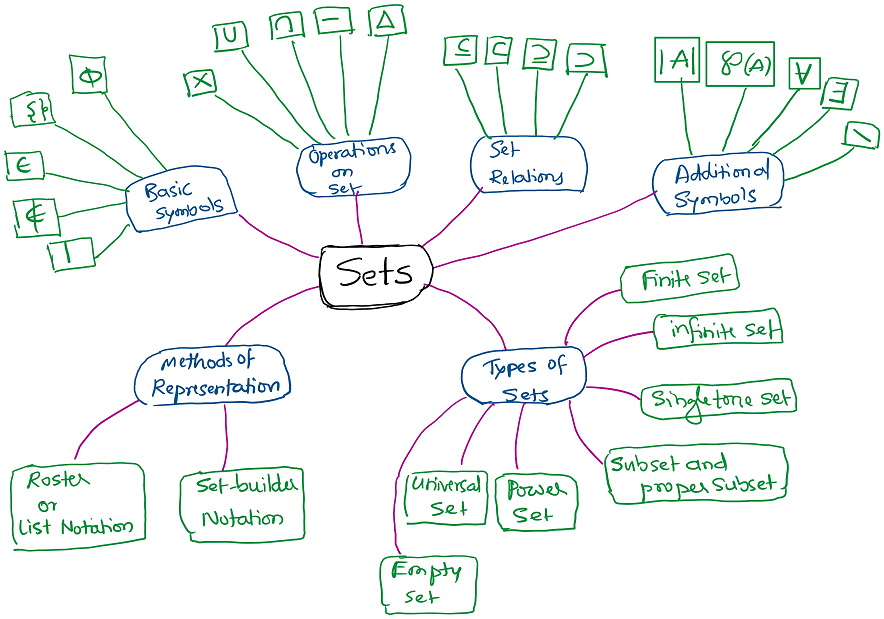 ϕ
{}
∈
∉
|
Basic
Symbols
×
∪
∩
−
Δ
Operations
on
Set
⊆
⊂
⊇
⊃
Set
Relations
|A|
℘(A)
∀
∃
\
Additional
Symbols
Sets
Methods of
Representation
Roster
or
List Notation
Set-builder
Notation
Types of
Sets
Finite set
infinite set
Singletone set
Subset and
proper subset
Universal
Set
Power
Set
Empty
set